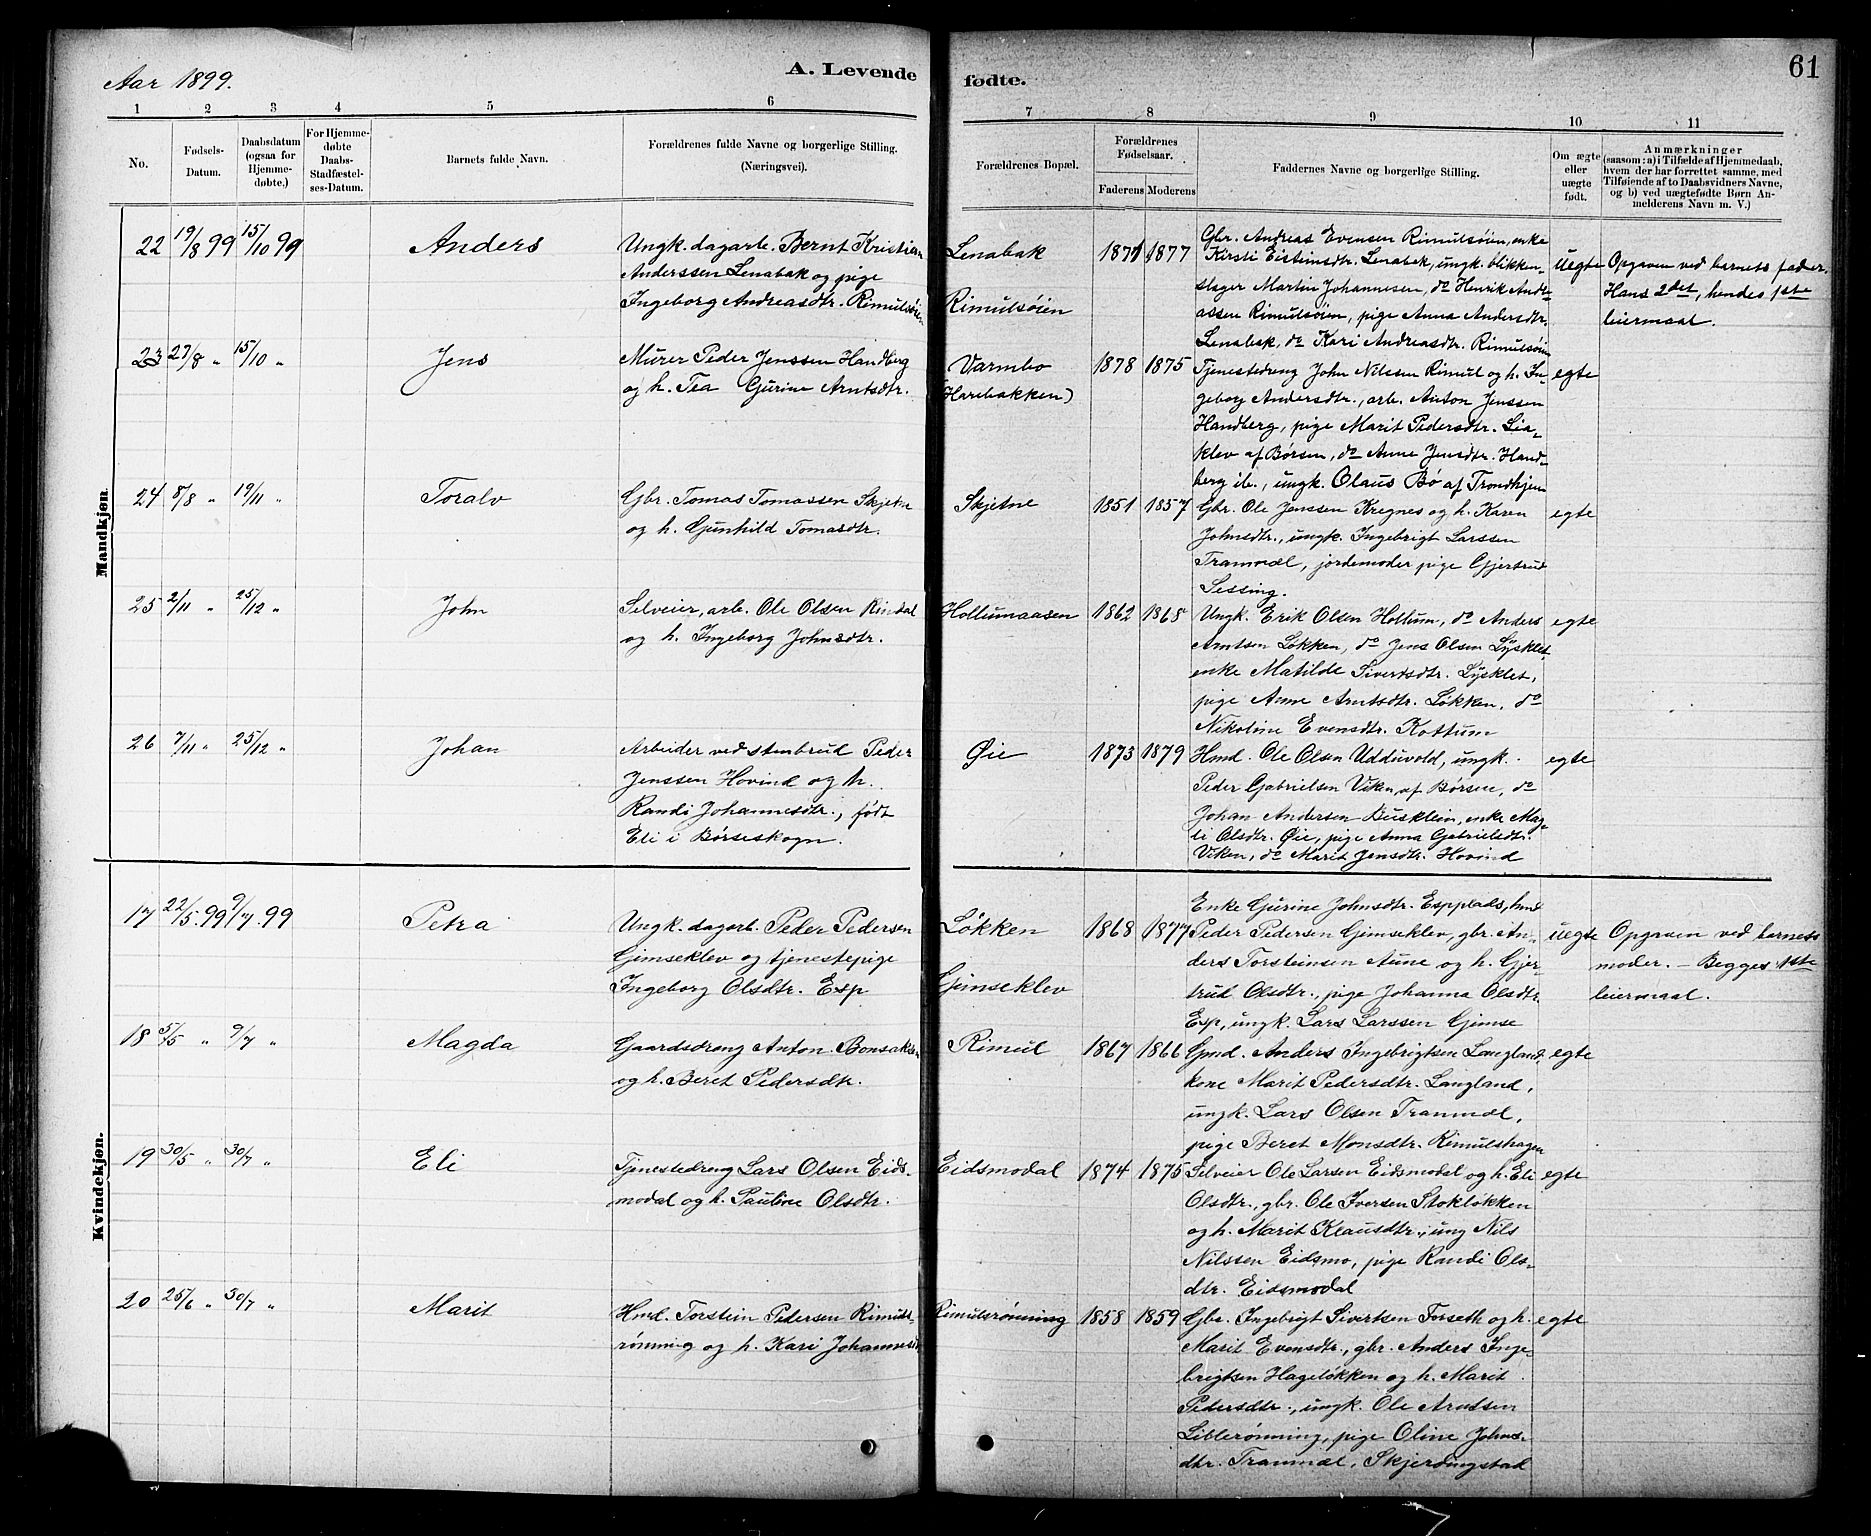 Aar 1899.
A. Levende fødte.
61
1 2 3 4 5 6 7 8 9 10 11
No.
Fødsels-
Datum.
Daabsdatum
(ogsaa for
Hjemme-
døbte.)
For Hjemme-
døbte
Daabs-
Stadfæstel-
ses-Datum.
Barnets fulde Navn.
Forældrenes fulde Navne og borgerlige Stilling.
(Næringsvei).
Forældrenes Bopæl.
Forældrenes
Fødselsaar.
Faderens Moderens
Faddernes Navne og borgerlige Stilling.
Om ægte
eller
uægte
født.
Anmærkninger
(saasom: a) i Tilfælde af Hjemmedaab,
hvem der har forrettet samme, med
Tilføiende af to Daabsvidners Navne,
og b) ved uægtefødte Børn An-
melderens Navn m. V.)
Mandkjøn.
22 19/8 99 15/10 99 Anders
Ungk. dagarb. Bernt Kristian
Anderssen Lenabak og pige
Ingeborg Andreasdtr. Rimulsøien
Lenabak
Rimulsøien
1871 1877
Gbr. Andreas Evensen Rimulsøien, enke
Kirsti Eistensdtr. Lenabak, ungk. blikken-
slager Martin Johannesen, do Henrik Andre-
assen Rimulsøien, pige Anna Andersdtr.
Lenabak, do Kari Andreasdtr. Rimulsøien
uegte
Opgaven ved barnets fader.
Hans 2det, hendes 1ste
leiermaal.
23 27/8 " 15/10 " Jens
Murer Peder Jenssen Handberg
og h. Tea Gurine Arntsdtr.
Varmbo
(Harebakken)
1878 1875
Tjenestedreng John Nilssen Rimul og h. In-
geborg Andersdtr., arb. Anton Jenssen
Handberg, pige Marit Pedersdtr. Lia-
klev af Børsen, do Anne Jensdtr. Hand-
berg ib., ungk. Olaus Bø af Trondhjem
egte
24 8/8 " 19/11 " Toralv
Gbr. Tomas Tomassen Skjetne
og h. Gunhild Tomasdtr.
Skjetne
1851 1857
Gbr. Ole Jenssen Kregnes og h. Karen
Johnsdtr., ungk. Ingebrigt Larssen
Tranmæl, jordemoder pige Gjertrud
Sessing.
egte
25 2/11 " 25/12 " John
Selveier, arb. Ole Olsen Rindal
og h. Ingeborg Johnsdtr.
Hollumaasen
1862 1868
Ungk. Erik Olsen Hollum, do Anders
Arntsen Løkken, do Jens Olsen Lysklet,
enke Matilde Sivertsdtr. Lysklet,
pige Anne Arntsdtr. Løkken, do
Nikoline Evensdtr. Kottum
egte
26 7/11 " 25/12 " Johan
Arbeider ved stenbrud Peder
Jenssen Hovind og h.
Randi Johannesdtr., født
Eli i Børseskogn.
Øie
1873 1879
Hmd. Ole Olsen Udduvold, ungk.
Peder Gabrielsen Viken, af Børsen, do
Johan Andersen Busklein, enke Mag-
li Olsdtr. Øie, pige Anna Gabrielsdtr.
Viken, do Marit Jensdtr. Hovind
egte
Kvindekjøn.
17 22/5 99 9/7 99 Petra
Ungk. dagarb. Peder Pedersen
Gimseklev og tjenestepige
Ingeborg Olsdtr. Esp
Løkken
Gimseklev
1868 1877
Enke Gurine Johnsdtr. Espplads, hmd
Peder Pedersen Gimseklev, gbr. An-
ders Torsteinsen Aune og h. Gjer-
trud Olsdtr., pige Johanna Olsdtr.
Esp, ungk. Lars Larssen Gimse
uegte
Opgaven ved barnets
moder. - Begges 1ste
leiermaal.
18 5/5 " 9/7 " Magda
Gaardsdreng Anton Bonsaksen
og h. Beret Pedersdtr.
Rimul
1867 1866
Gmd. Anders Ingebrigtsen Langland,
kone Marit Pedersdtr. Langland,
ungk. Lars Olsen Tranmæl,
pige Beret Monsdtr. Rimulshagen
egte
19 30/5 " 30/7 " Eli
Tjenestedreng Lars Olsen Eids-
modal og h. Pauline Olsdtr.
Eidsmodal
1874 1875
Selveier Ole Larsen Eidsmodal og h. Eli
Olsdtr., gbr. Ole Iversen Stokløkken
og h. Marit Klausdtr., ung Nils
Nilssen Eidsmo, pige Randi Ols-
dtr. Eidsmodal
egte
20 25/6 " 30/7 " Marit
Hmd. Torstein Pedersen Rimuls-
rønning og h. Kari Johannesdtr
Rimulsrønning
1858 1859
Gbr. Ingebrigt Sivertsen Forseth og h.
Marit Evensdtr., gbr. Anders Inge-
brigtsen Hageløkken og h. Marit
Pedersdtr., ungk. Ole Arntsen
Lillerønning, pige Oline Johns-
dtr. Tranmæl, Skjerdingstad
egte